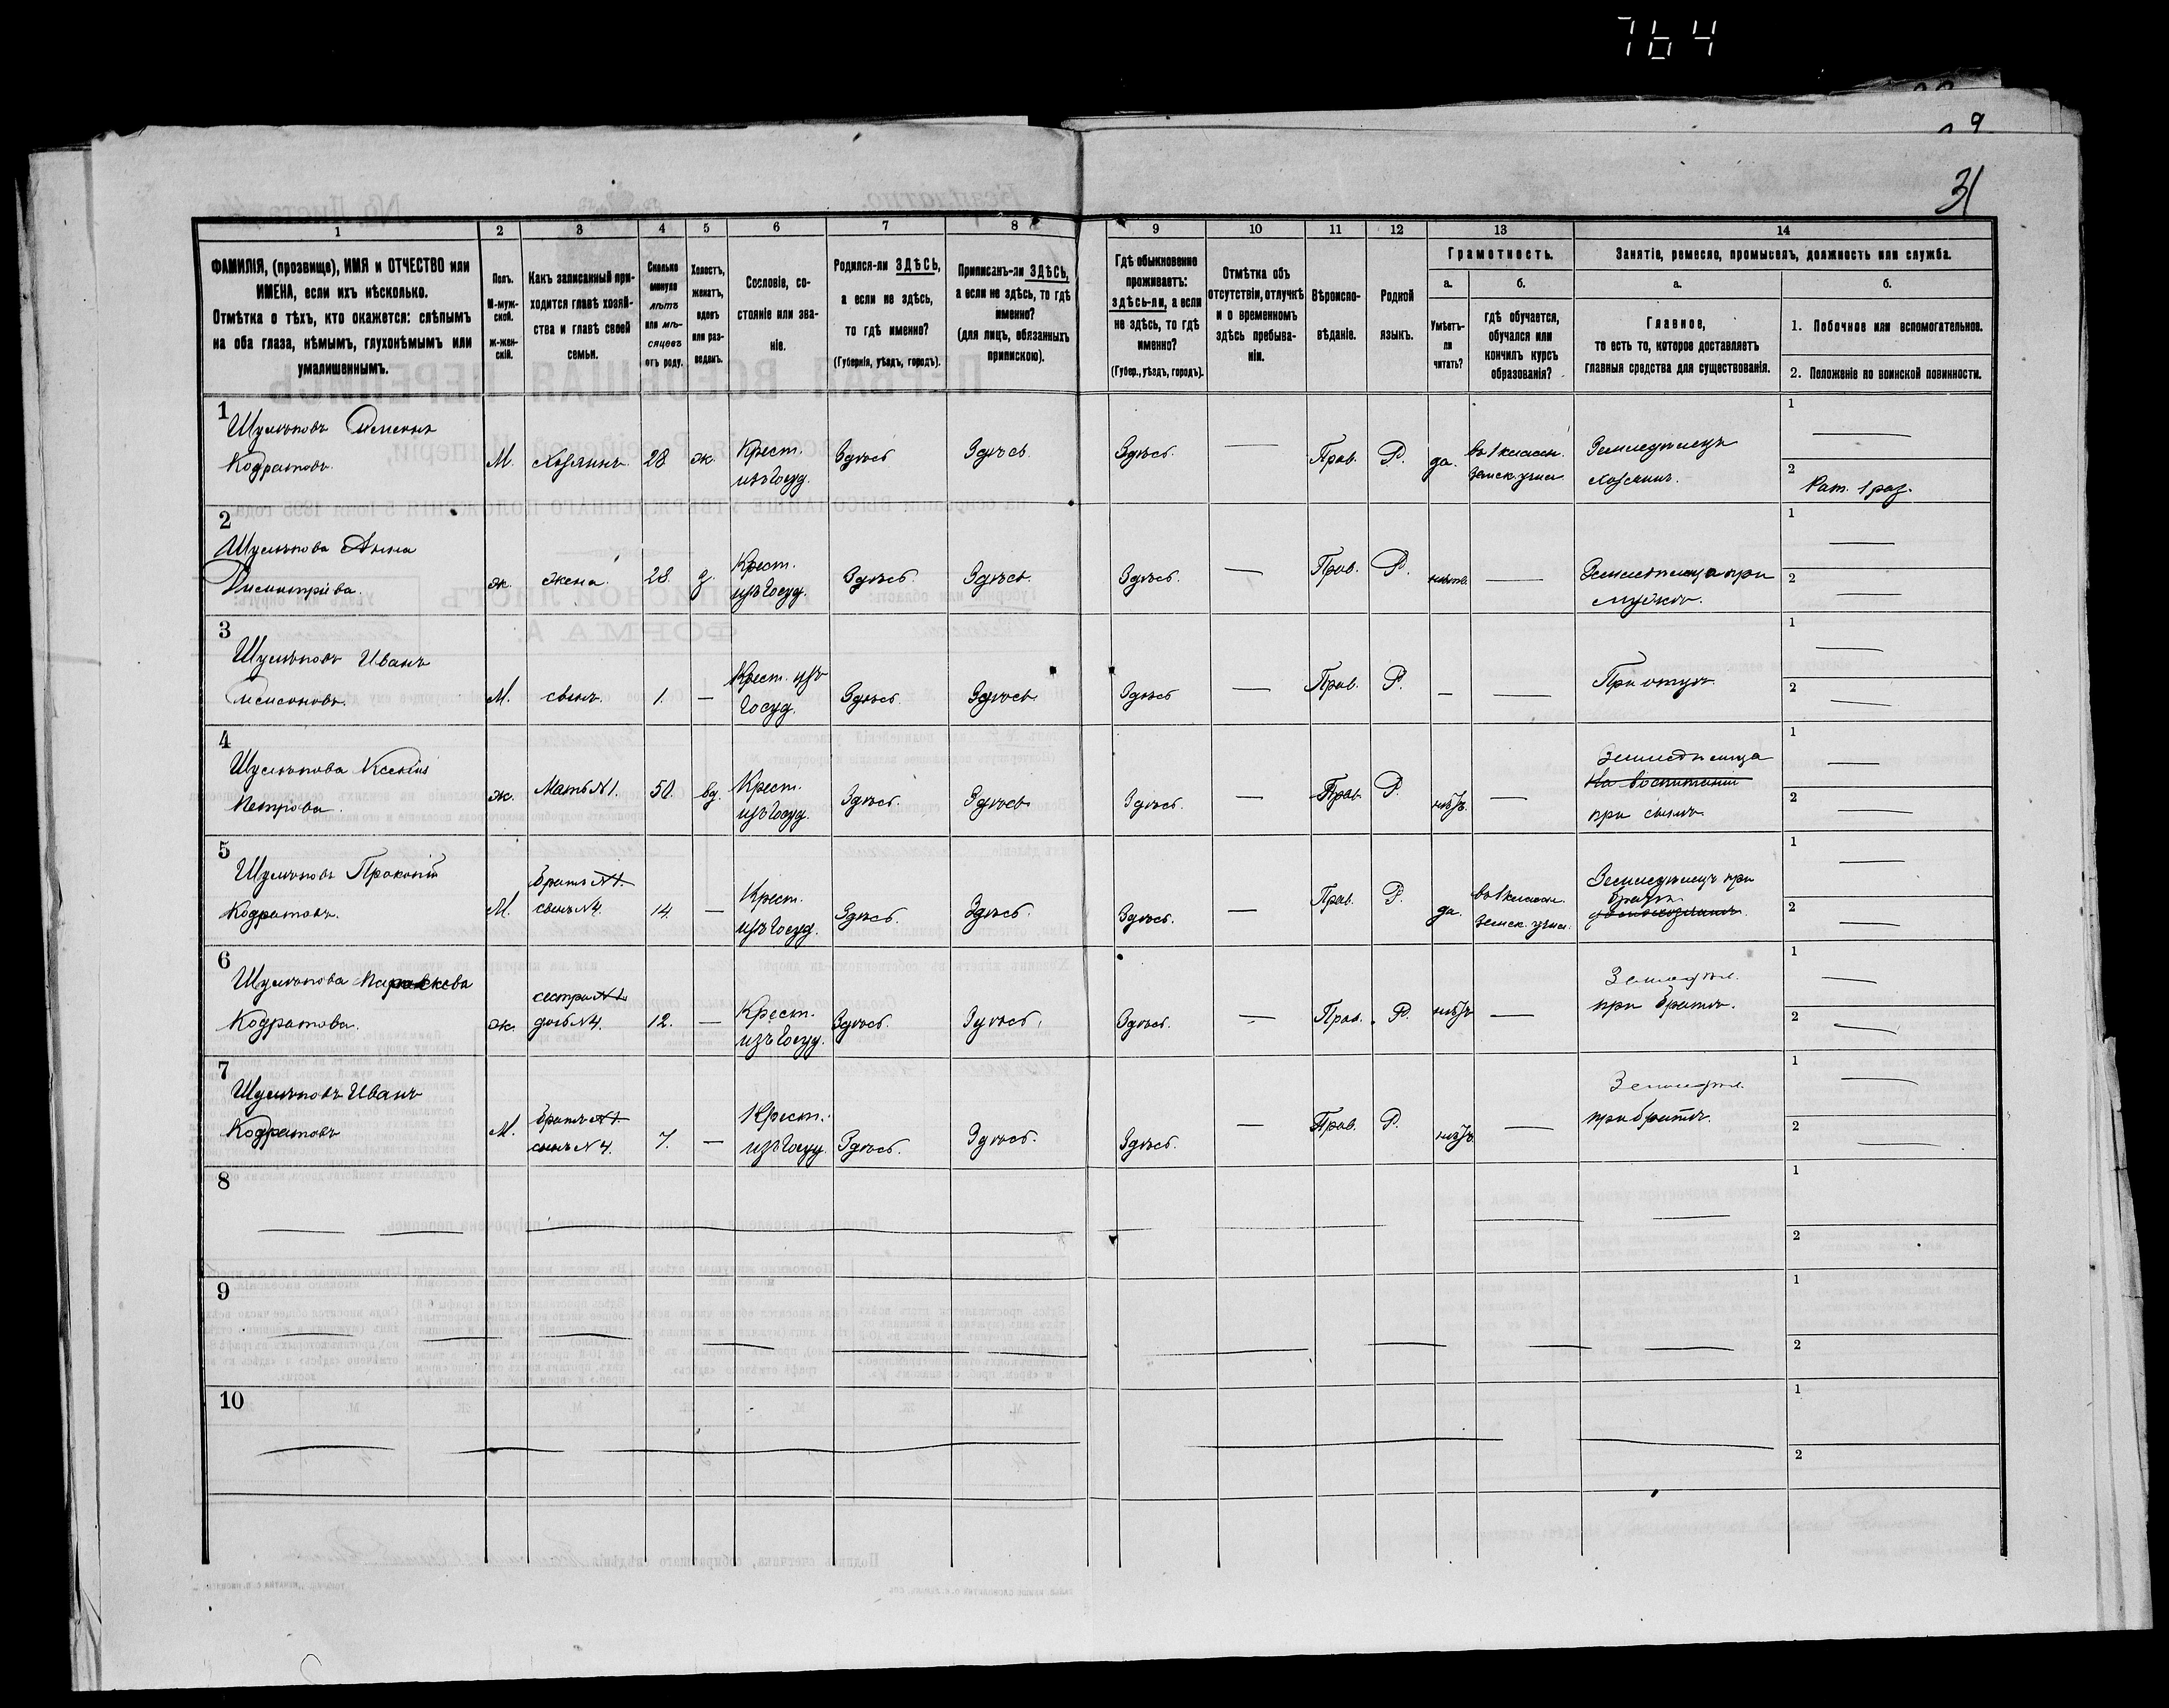 764
9
31
1
2
3
4
5
6
7
8
9
10
11
12
13
14
ФАМИЛІЯ, (прозвище), ИМЯ и ОТЧЕСТВО или
ИМЕНА, если ихъ нѣсколько.
Отмѣтка о тѣхъ, кто окажется: слѣпымъ
на оба глаза, нѣмымъ, глухонѣмымъ или
умалишеннымъ.
Полъ.
М-муж-
ской.
ж-жен-
скій.
Какъ записанный при-
ходится главѣ хозяй-
ства и главѣ своей
семьи.
Сколько
минуло
лѣтъ
или мѣ-
сяцевъ
отъ роду.
Холостъ,
женатъ,
вдовъ
или раз-
веденъ.
Сословіе, со-
стояніе или зва-
ніе.
Родился-ли ЗДѢСЬ,
а если не здѣсь,
то гдѣ именно?
(Губернія, уѣздъ, городъ).
Приписанъ-ли ЗДѢСЬ,
а если не здѣсь, то гдѣ
именно?
(для лицъ, обязанныхъ
припискою).
Гдѣ обыкновенно
проживаетъ:
здѣсь-ли, а если
не здѣсь, то гдѣ
именно?
(Губер., уѣздъ, городъ).
Отмѣтка объ
отсутствіи, отлучкѣ
и о временномъ
здѣсь пребыва-
ніи.
Вѣроиспо-
вѣданіе.
Родной
языкъ.
Грамотность.
а.
Умѣетъ-
ли
читать?
б.
гдѣ обучается,
обучался или
кончилъ курсъ
образованія?
Занятіе, ремесло, промыселъ, должность или служба.
а.
Главное,
то есть то, которое доставляетъ
главныя средства для существованія.
б.
1. Побочное или вспомогательное.
2. Положеніе по воинской повинности.
1
Кодратовъ.
М. Хозяинъ 28 ж. Крест.
изъ Госуд.
Здѣсь Здѣсь Здѣсь. — Прав. Р. да. въ 1 классн.
земск. учил.
Земледѣлецъ
хозяинъ.
1 —
2 Рат. 1 раз.
2
Анна
Дмитріева.
ж. жена. 28. з. Крест.
изъ Госуд.
Здѣсь. Здѣсь. Здѣсь. — Прав. Р. нѣтъ. —
при
мужѣ.
1 —
2 —
3
Иванъ
М. сынъ. 1. — Крест. изъ
Госуд.
Здѣсь. Здѣсь Здѣсь — Прав. Р. — —
При отцѣ.
1 —
2 —
4
Ксенія
Петрова.
ж. Мать №1. 50. вд. Крест.
изъ Госуд.
Здѣсь. Здѣсь Здѣсь. — Прав. Р. нѣтъ. —
На воспитаніи
при сынѣ.
1 —
2 —
5
Прокопій
Кодратовъ.
М. братъ №1.
сынъ №4. 14. — Крест.
изъ Госуд.
Здѣсь. Здѣсь. Здѣсь. — Прав. Р. да. въ 1 классн.
земск. учил.
Земледѣлецъ при
братѣ
1 —
2 —
6
Кодратова.
ж. сестра №1.
дочь №4. 12. — Крест.
изъ Госуд.
Здѣсь. Здѣсь. Здѣсь. — Прав. Р. нѣтъ —
Земледѣл.
при братѣ.
1 —
2 —
7
Иванъ
Кодратовъ
М. братъ №1.
сынъ №4. 7. — Крест.
изъ Госуд.
Здѣсь. Здѣсь. Здѣсь. — Прав. Р. нѣтъ. —
Земледѣл.
при братѣ.
1 —
2 —
8
1
2
9
1
2
10
1
2